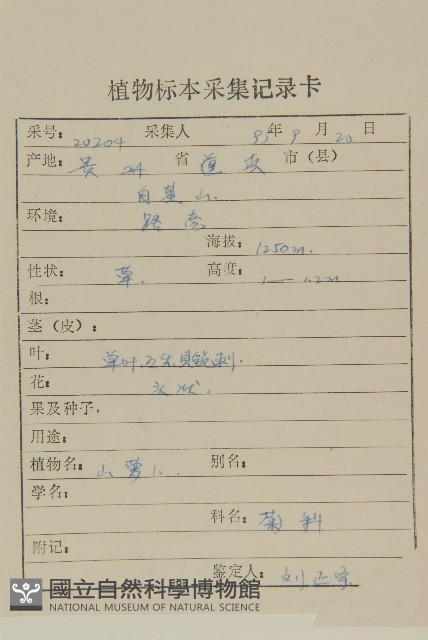 植物标本采集记录卡
采号: 20204 采集人 93年9月20日
产地: 贵州省道真市(县)
山.
环境: 路旁
海拔: 1250m.
性状: 草. 高度: 1—1.2m
根:
茎(皮):
叶: 单叶.互生.具锐刺.
花:
果及种子.
用途:
植物名: 山萝卜. 别名:
学名:
科名: 菊科
附记:
鉴定人: 刘正宇
國立自然科學博物館
NATIONAL MUSEUM OF NATURAL SCIENCE